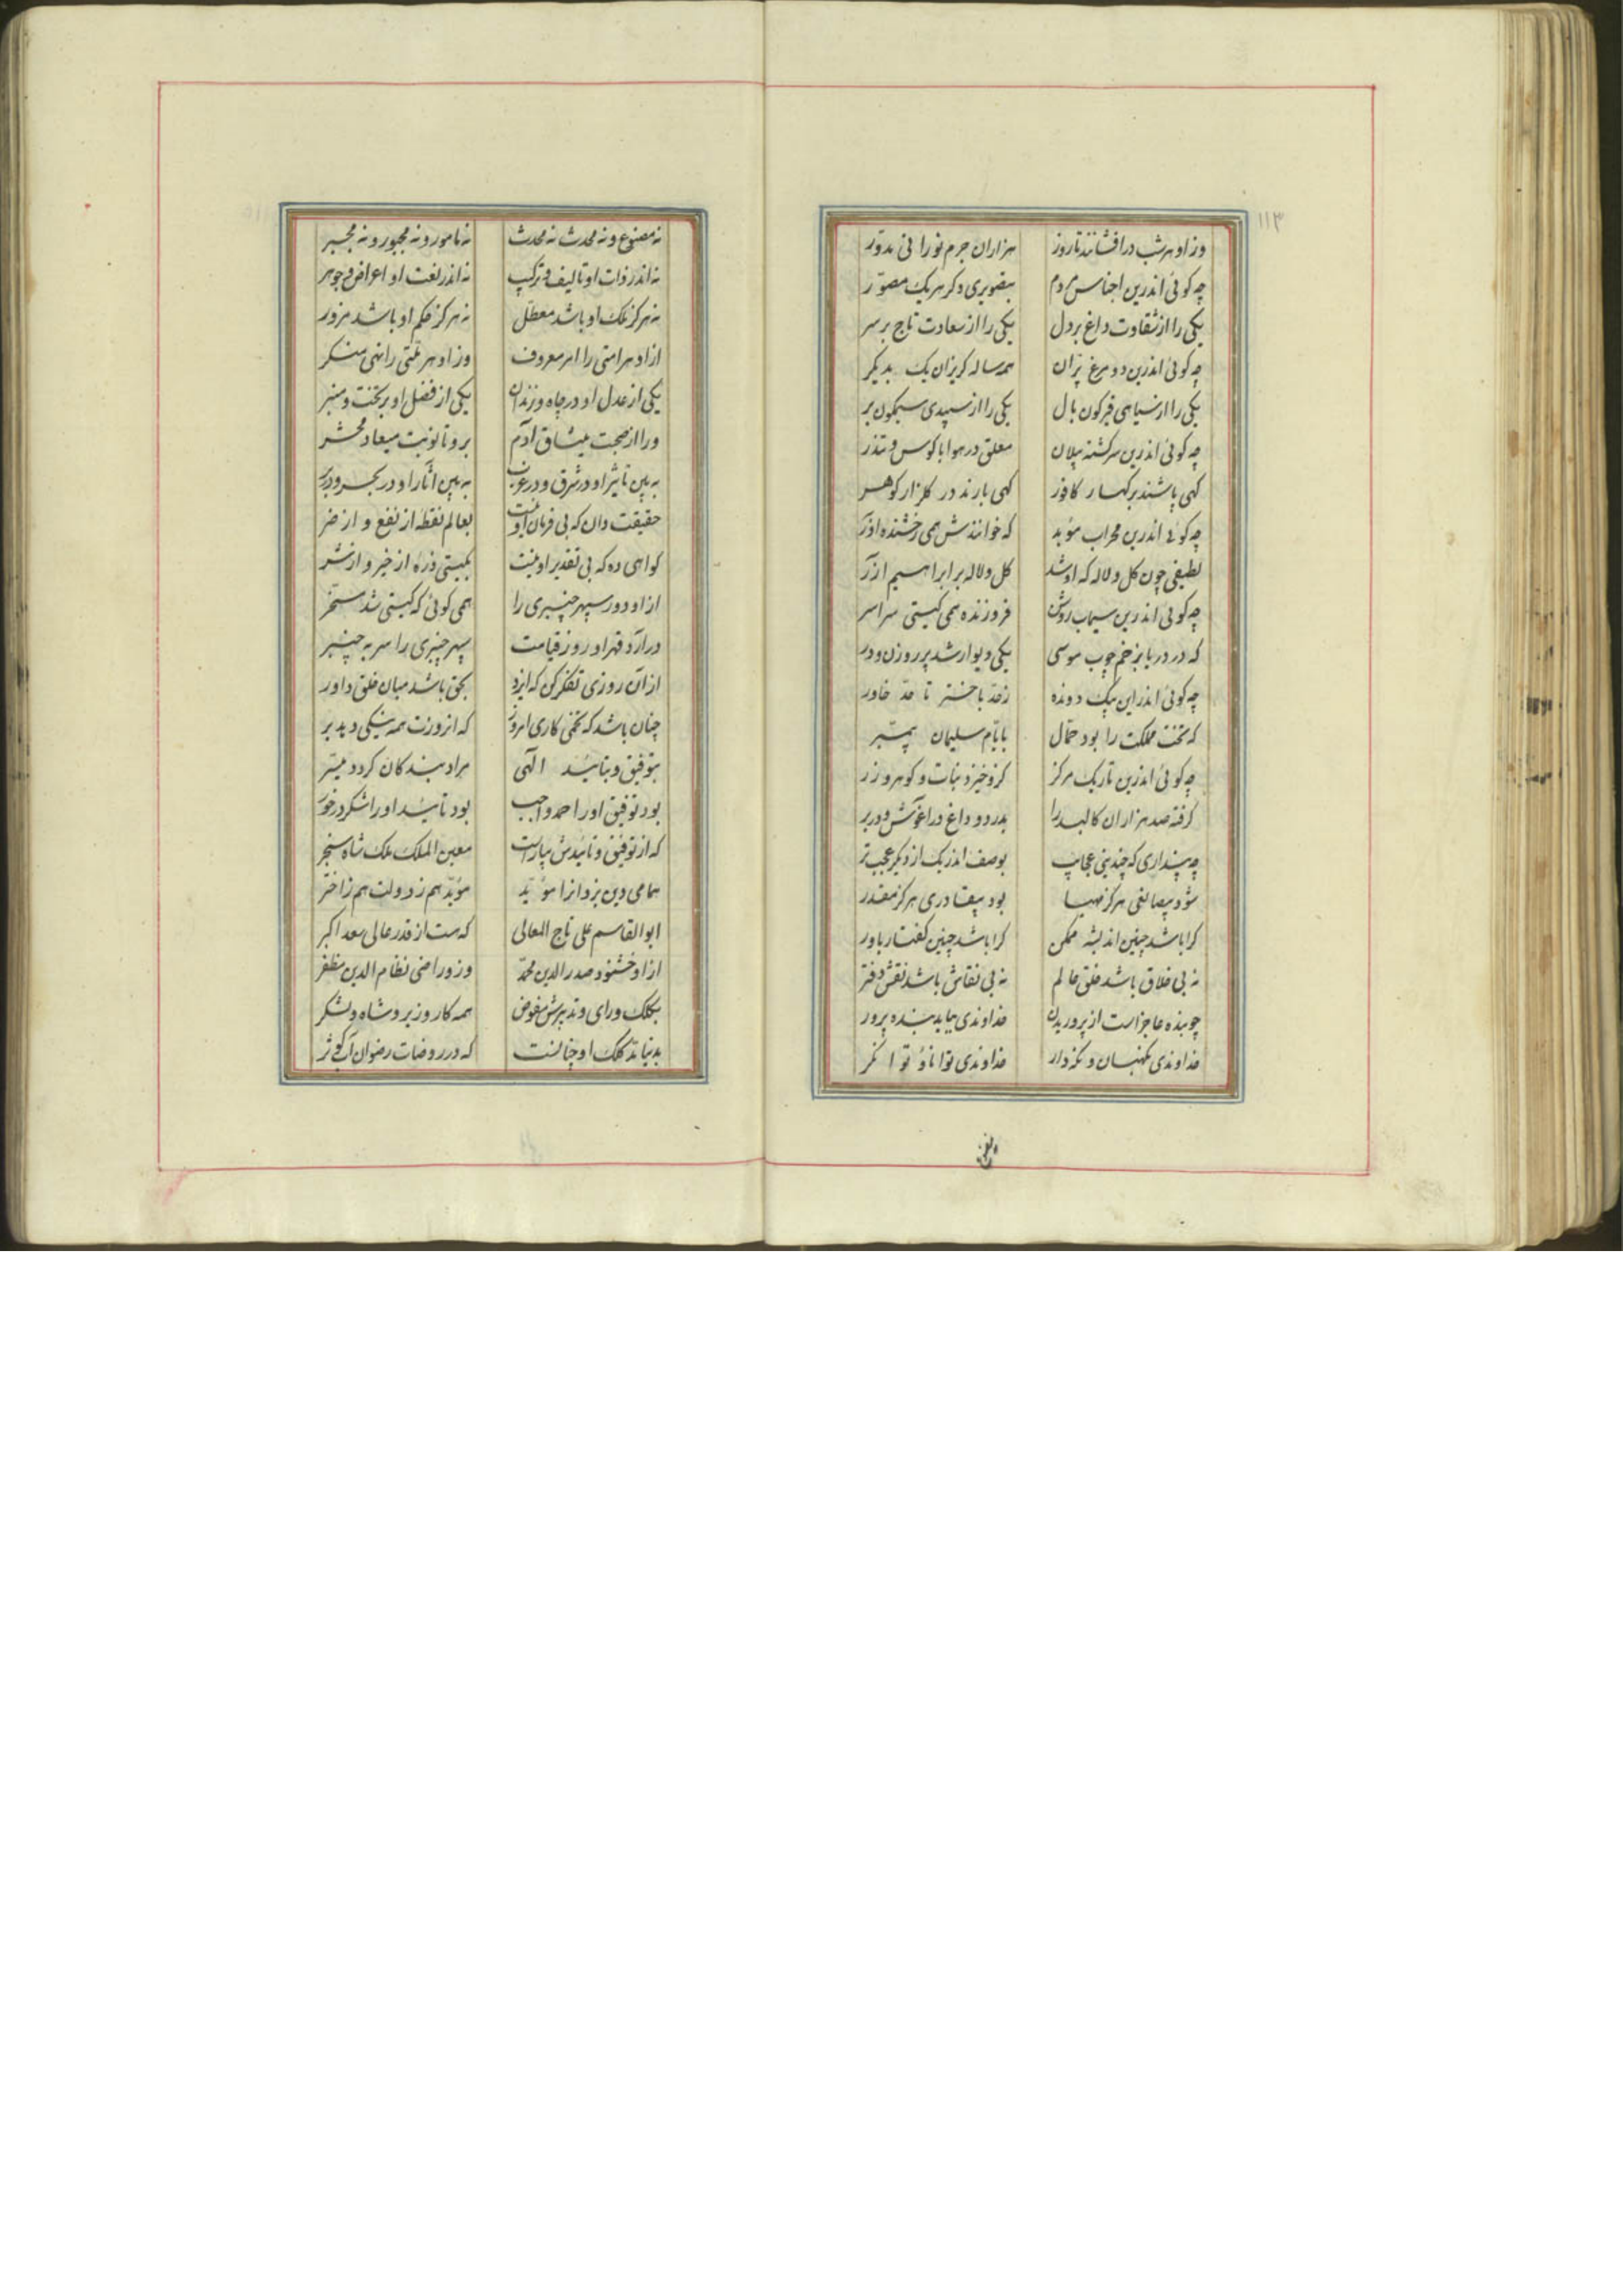 ۱۱۳
وز او هر شب درافشانند تا روز هزاران جرم نورانی مدور
چه کوئی اندرین اجناس مردم بتصویری دکر هر یک مصور
یکی را از شقاوت داغ بر دل یکی را از سعادت تاج بر سر
چه کوئی اندرین دو مرغ پران همه ساله کریزان یک بدیکر
یکی را از سیاهی قیرکون بال یکی را از سپیدی سیمکون بر
چه کوئی اندرین سرکشته پیلان معلق در هوا با کوس و تندر
کهی پاشند بر کهسار کافور کهی بارند در کلزار کوهر
چه کوئی اندرین محراب موبد که خوانندش همی رخشنده اذر
لطیفی چون کل و لاله که او شد کل و لاله بر ابراهیم ازر
چه کوئی اندرین سیماب روشن فروزنده همی کیتی سراسر
که در دریا بزخم چوب موسی یکی دیوار شد پر روزن و در
چه کوئی اندر این پیک دونده زحد باختر تا حد خاور
که تخت مملکت را بود حمال بایام سلیمان پیمبر
چه کوئی اندرین تاریک مرکز کزو خیزد نبات و کوهر و زر
کرفته صد هزاران کالبد را بدرد و داغ در اغوش و در بر
چه پنداری که چندینی عجایب بوصف اندر یک از دیکر عجب تر
شود بیصانعی هرکز مهیا بود بیقادری هرکز مقدر
کرا باشد چنین اندیشه ممکن کرا باشد چنین کفتار باور
نه بی خلاق باشد خلق عالم نه بی نقاش باشد نقش دفتر
چو بنده عاجز است از پروریدن خداوندی بباید بنده پرور
خداوندی نکهبان و نکودار خداوندی توانا و توانکر
نه مصنوع و نه محدث نه محدث نه مامور و نه مجبور و نه مجبر
نه اندر ذات او تالیف و ترکیب نه اندر نعت او اعراض و جوهر
نه هرکز ملک او باشد معطل نه هرکز حکم او باشد مزور
از او هر امتی را امر معروف وز او هر ملتی را نهی منکر
یکی از عدل او در چاه و زندان یکی از فضل او بر تخت و منبر
ورا از صحبت میثاق آدم برو تا نوبت میعاد محشر
به بین تاثیر او در شرق و در غرب به بین اثار او در بحر و در بر
حقیقت دان که بی فرمان او نیست بعالم نقطه از نفع و از ضر
کواهی ده که بی تقدیر او نیست بکیتی ذره از خیر و از شر
از او دور سپهر چنبری را همی کوئی که کیتی شد مسخر
درآرد قهر او روز قیامت سپهر چنبری را سر به چنبر
از آن روزی تفکر کن که ایزد بحق باشد میان خلق داور
چنان باشد که تخمی کاری امروز که انروزت همه نیکی دهد بر
بتوفیق و بتایید الهی مراد بندکان کردد میسر
بود توفیق او را حمد واجب بود تایید او را شکر درخور
که از توفیق و تائیدش بیاراست معین الملک ملک شاه سنجر
همامی دین یزدانرا موید موید هم ز دولت هم ز اختر
ابوالقاسم علی تاج المعالی که هست از قدر عالی سعد اکبر
از او خشنود صدر الدین محمد وزو راضی نظام الدین مظفر
بکلک و رای و تدبیرش مفوض همه کار وزیر و شاه و لشکر
بدنیا ند کلک او چنانست که در روضات رضوان آب کوثر